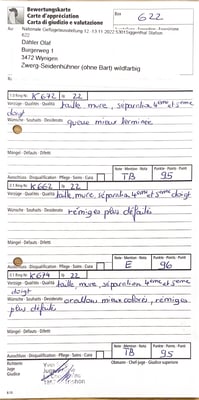 Bewertungskarte
Carte d'appréciation
Carta di giudizio e valutazione
Box 622
Nationale Geflügelausstellung 12.-13-11 2022 5301 Siggenthal Station
622
Dähler Olaf
Burgerweg 1
3472 Wynigen
Zwerg-Seidenhühner (ohne Bart) wildfarbig
0.1 Ring-Nr. K672 22
Vorzüge - Qualités - Qualità taille, mure, séparation 4ème et 5ème doigt
Wünsche - Souhaits - Desiderata queue mieux terminée
Mängel - Défauts - Difetti
Ausschluss - Disqualification - Pflege - Soins - Cura
Note - Mention - Nota TB
Punkte - Points - Punti 95
K662 22
Vorzüge - Qualités - Qualità taille, mure, séparation 4ème et 5ème doigt
Wünsche - Souhaits - Desiderata rémiges plus défaits
Mängel - Défauts - Difetti
Ausschluss - Disqualification - Pflege - Soins - Cura
Note - Mention - Nota E
Punkte - Points - Punti 96
K674 22
Vorzüge - Qualités - Qualità taille, mure, séparation 4ème et 5ème doigt
Wünsche - Souhaits - Desiderata oreillons mieux colorés, rémiges plus défaits
Mängel - Défauts - Difetti
Ausschluss - Disqualification - Pflege - Soins - Cura
Note - Mention - Nota TB
Punkte - Points - Punti 95
Richter
Juge
Giudice
Obmann - Chef juge - Giudice superiore